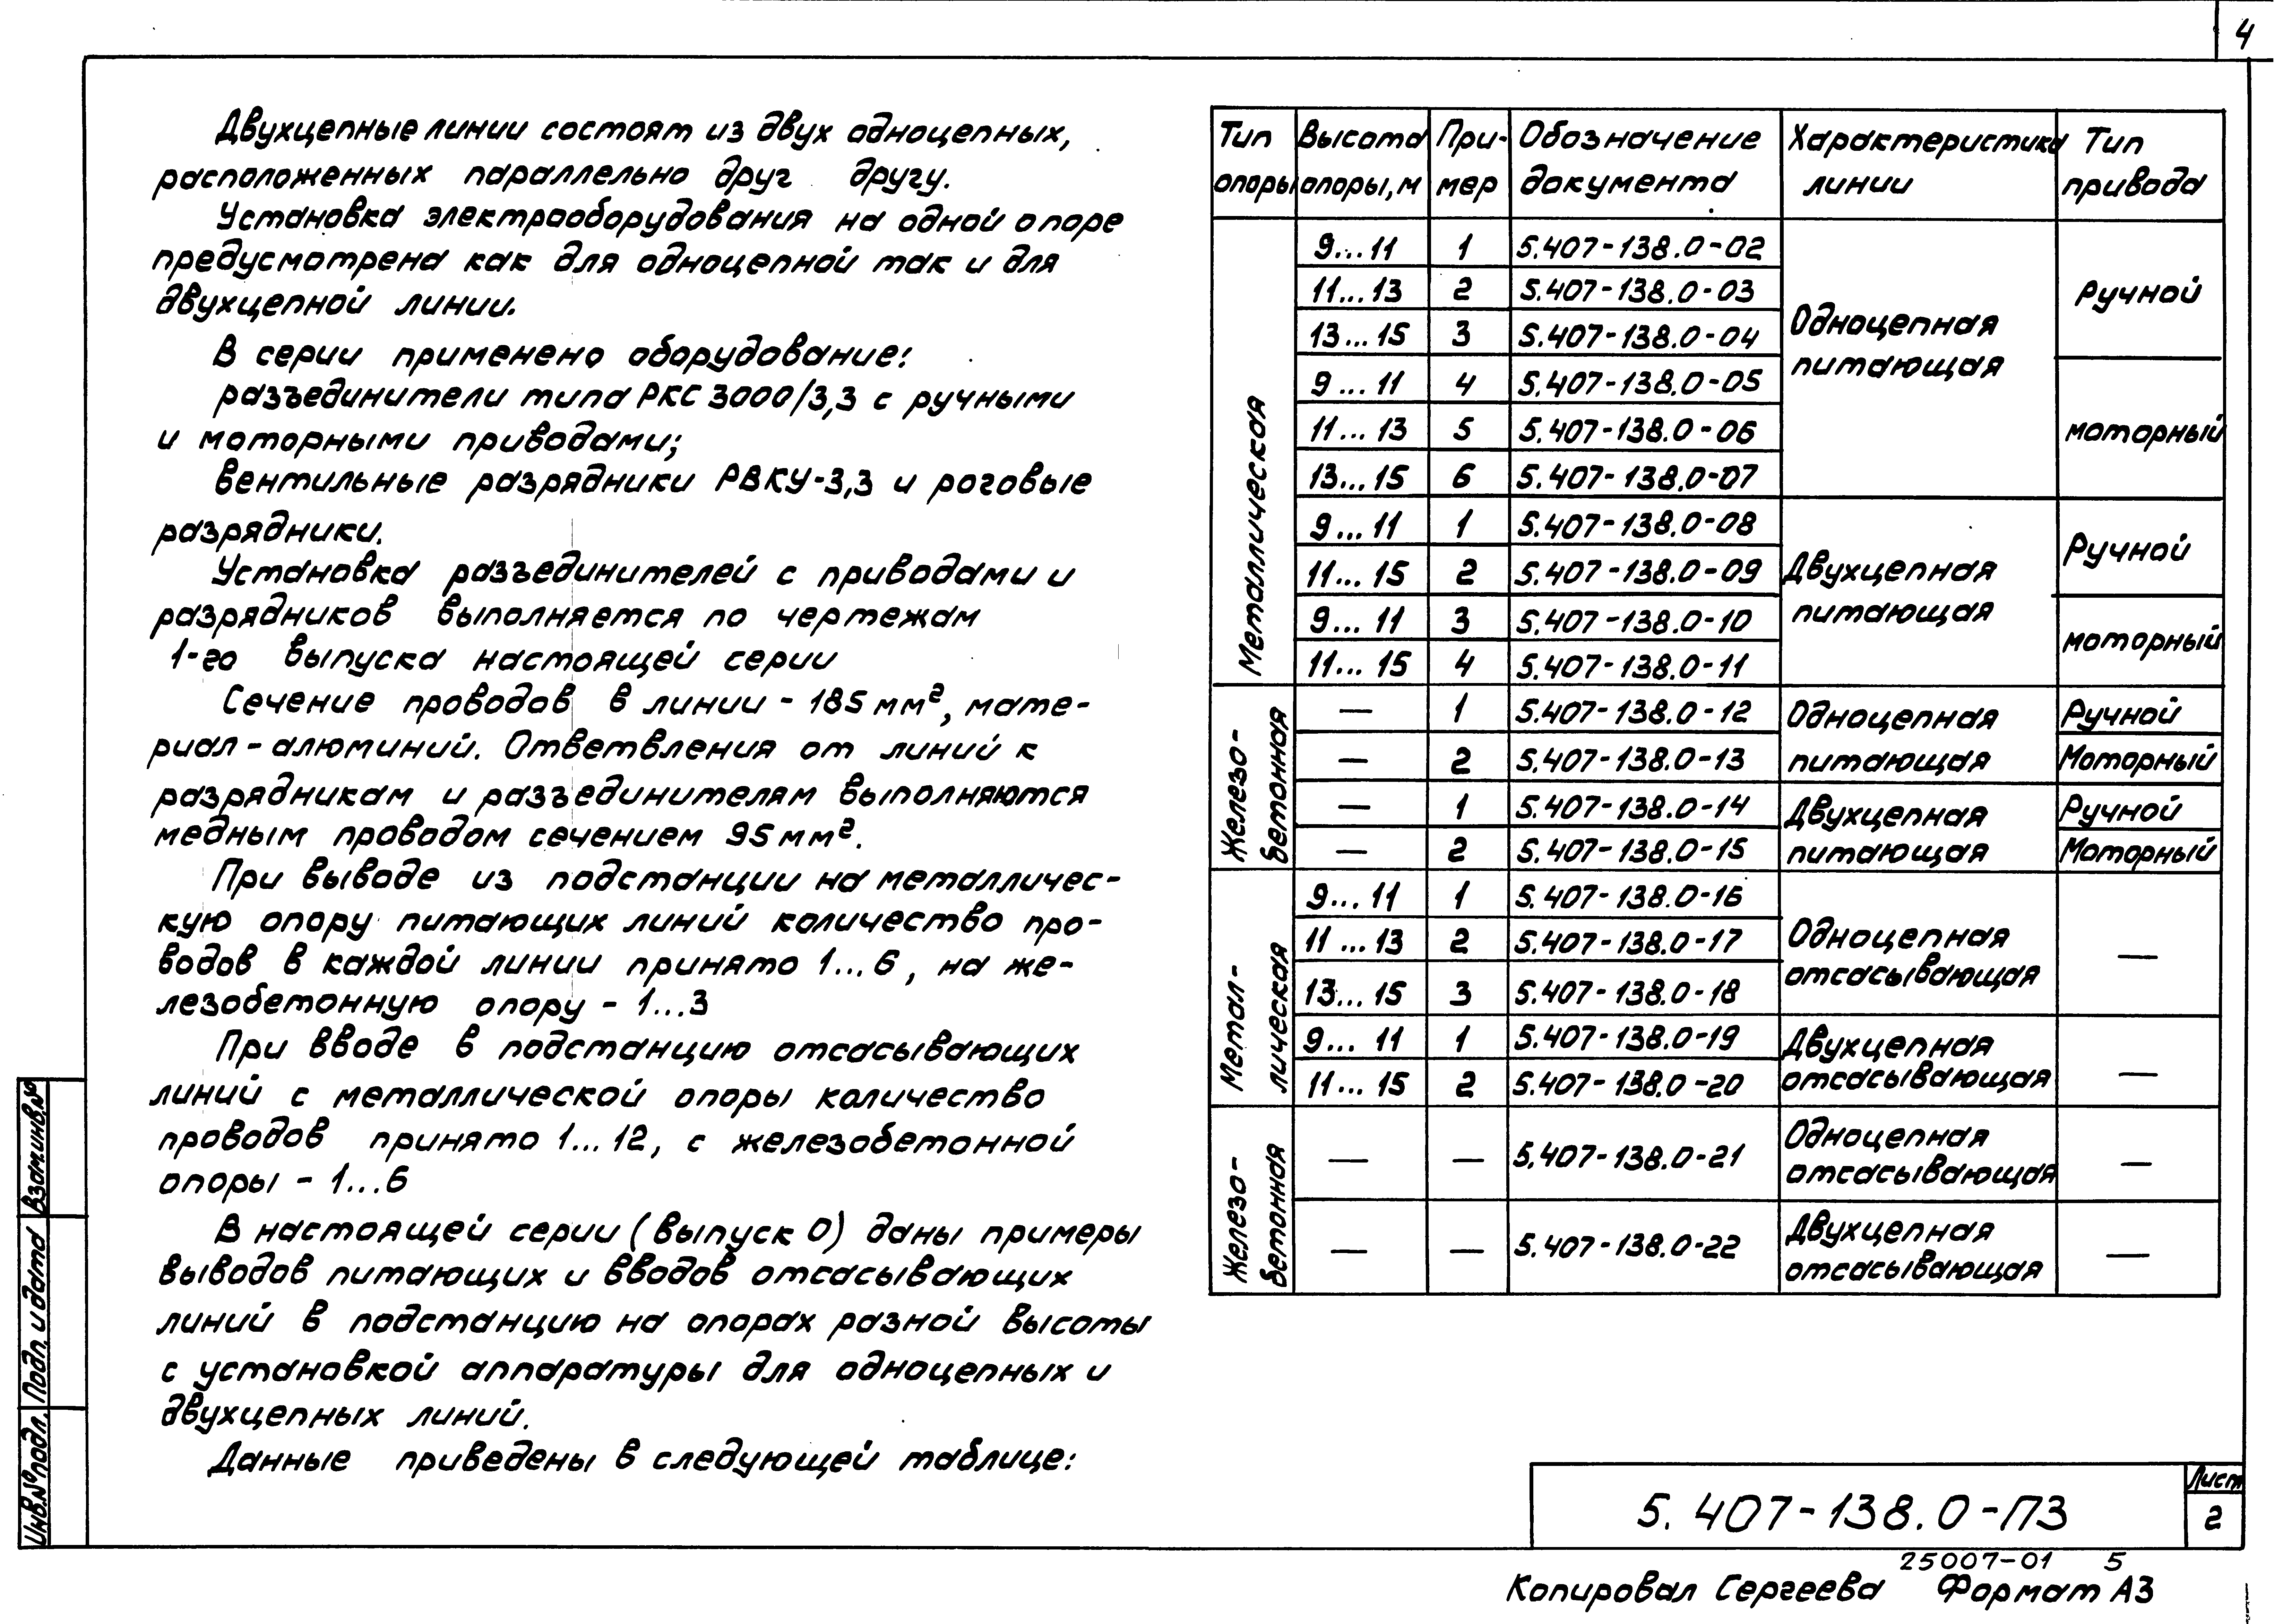 4
Двухцепные линии состоят из двух одноцепных,
расположенных параллельно друг другу.
Установка электрооборудования на одной опоре
предусмотрена как для одноцепной так и для
двухцепной линии.
В серии применено оборудование:
разъединители типа РКС 3000/3,3 с ручными
и моторными приводами;
вентильные разрядники РВКУ-3,3 и роговые
разрядники.
Установка разъединителей с приводами и
разрядников выполняется по чертежам
1-го выпуска настоящей серии
Сечение проводов в линии - 185 мм², мате-
риал - алюминий. Ответвления от линий к
разрядникам и разъединителям выполняются
медным проводом сечением 95 мм².
При выводе из подстанции на металличес-
кую опору питающих линий количество про-
водов в каждой линии принято 1...6, на же-
лезобетонную опору - 1...3
При вводе в подстанцию отсасывающих
линий с металлической опоры количество
проводов принято 1...12, с железобетонной
опоры - 1...6
В настоящей серии (выпуск 0) даны примеры
выводов питающих и вводов отсасывающих
линий в подстанцию на опорах разной высоты
с установкой аппаратуры для одноцепных и
двухцепных линий.
Данные приведены в следующей таблице:
Тип Высота При- Обозначение Характеристика Тип
опоры опоры, м мер документа линии привода
Металлическая
9...11 1 5.407-138.0-02
11...13 2 5.407-138.0-03
13...15 3 5.407-138.0-04
9...11 4 5.407-138.0-05
11...13 5 5.407-138.0-06
13...15 6 5.407-138.0-07
Одноцепная
питающая
ручной
моторный
9...11 1 5.407-138.0-08
11...15 2 5.407-138.0-09
9...11 3 5.407-138.0-10
11...15 4 5.407-138.0-11
Двухцепная
питающая
Ручной
моторный
Железо-
бетонная
— 1 5.407-138.0-12 Одноцепная Ручной
— 2 5.407-138.0-13 питающая Моторный
— 1 5.407-138.0-14 Двухцепная Ручной
— 2 5.407-138.0-15 питающая Моторный
Метал-
лическая
9...11 1 5.407-138.0-16
11...13 2 5.407-138.0-17
13...15 3 5.407-138.0-18
Одноцепная
отсасывающая
—
9...11 1 5.407-138.0-19
11...15 2 5.407-138.0-20
Двухцепная
отсасывающая
—
Железо-
бетонная
— — 5.407-138.0-21
Одноцепная
отсасывающая
—
— — 5.407-138.0-22
Двухцепная
отсасывающая
—
Взам.инв.№
Подп. и дата
Инв.№ подл.
5.407-138.0-ПЗ
Лист
2
25007-01 5
Копировал Сергеева Формат А3